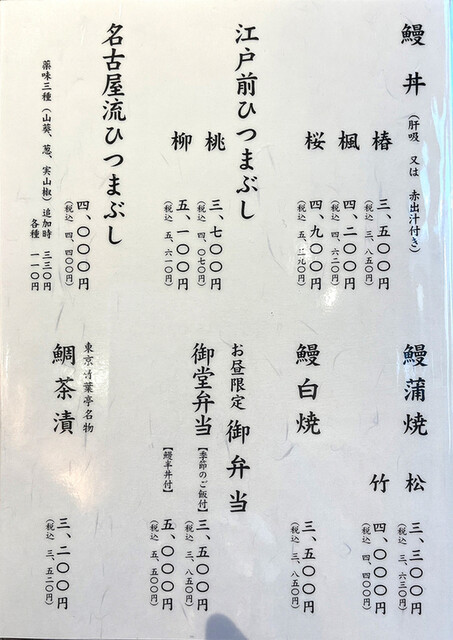 鰻丼（肝吸　又は　赤出汁付き）
椿　三、五〇〇円
（税込　三、八五〇円）
楓　四、二〇〇円
（税込　四、六二〇円）
桜　四、九〇〇円
（税込　五、三九〇円）
江戸前ひつまぶし
桃　三、七〇〇円
（税込　四、〇七〇円）
柳　五、一〇〇円
（税込　五、六一〇円）
名古屋流ひつまぶし
四、〇〇〇円
（税込　四、四〇〇円）
薬味三種（山葵、葱、実山椒）追加時　三三〇円
各種　一一〇円
鰻蒲焼
松　三、三〇〇円
（税込　三、六三〇円）
竹　四、〇〇〇円
（税込　四、四〇〇円）
鰻白焼
三、五〇〇円
（税込　三、八五〇円）
お昼限定　御弁当
御堂弁当
【季節のご飯付】　三、五〇〇円
（税込　三、八五〇円）
【鰻半丼付】　五、〇〇〇円
（税込　五、五〇〇円）
東京竹葉亭名物
鯛茶漬
三、二〇〇円
（税込　三、五二〇円）